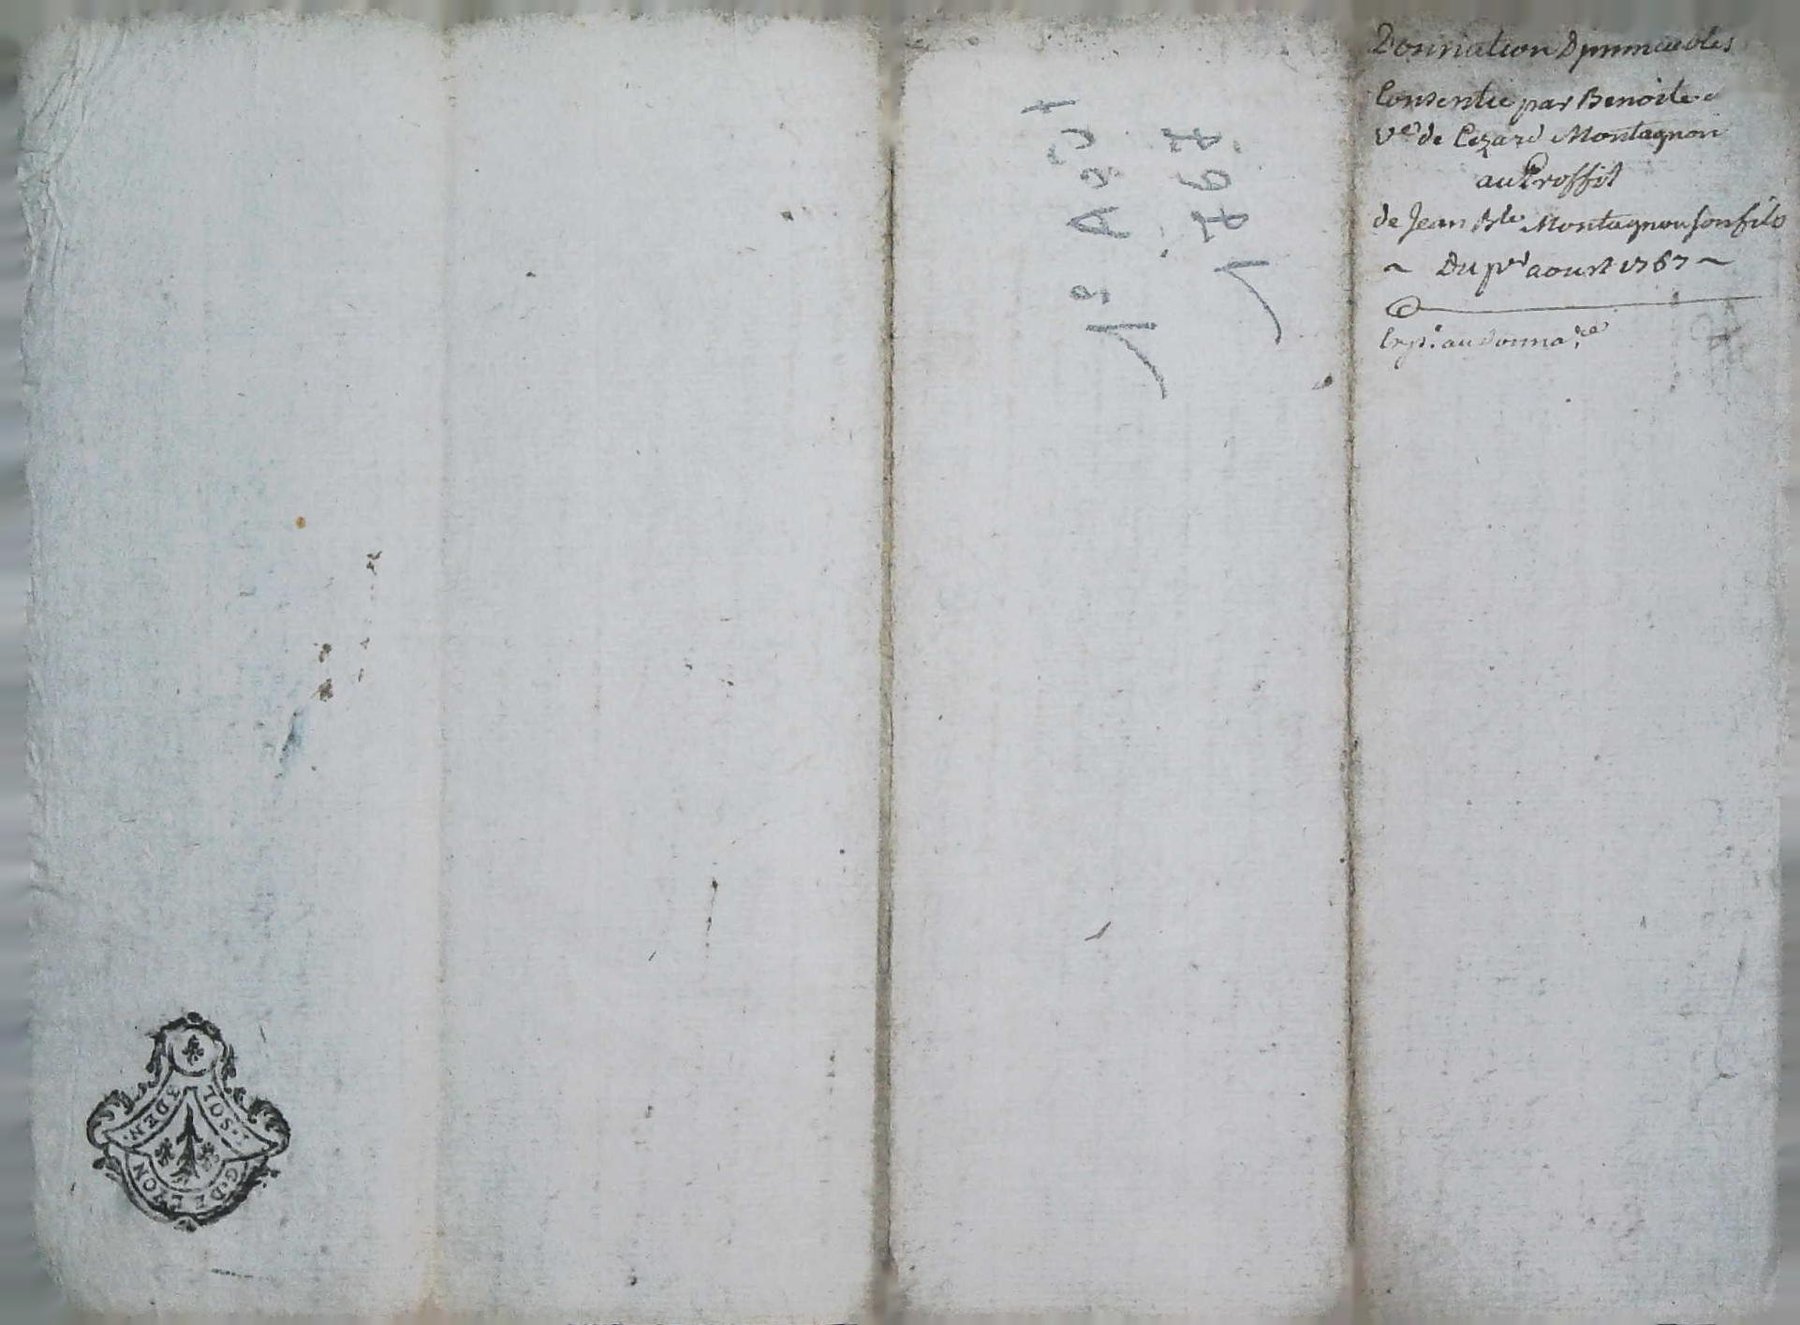 Donnation Dimmeubles
Consentie par Benoite
Ve de Cezard Montagnon
au Proffit
de Jean Bte Montagnon son fils
~ Du pr aoust 1767 ~
Exp. au donnare
1º Août
1767
SOLS
3 DEN.
G. DE LYON